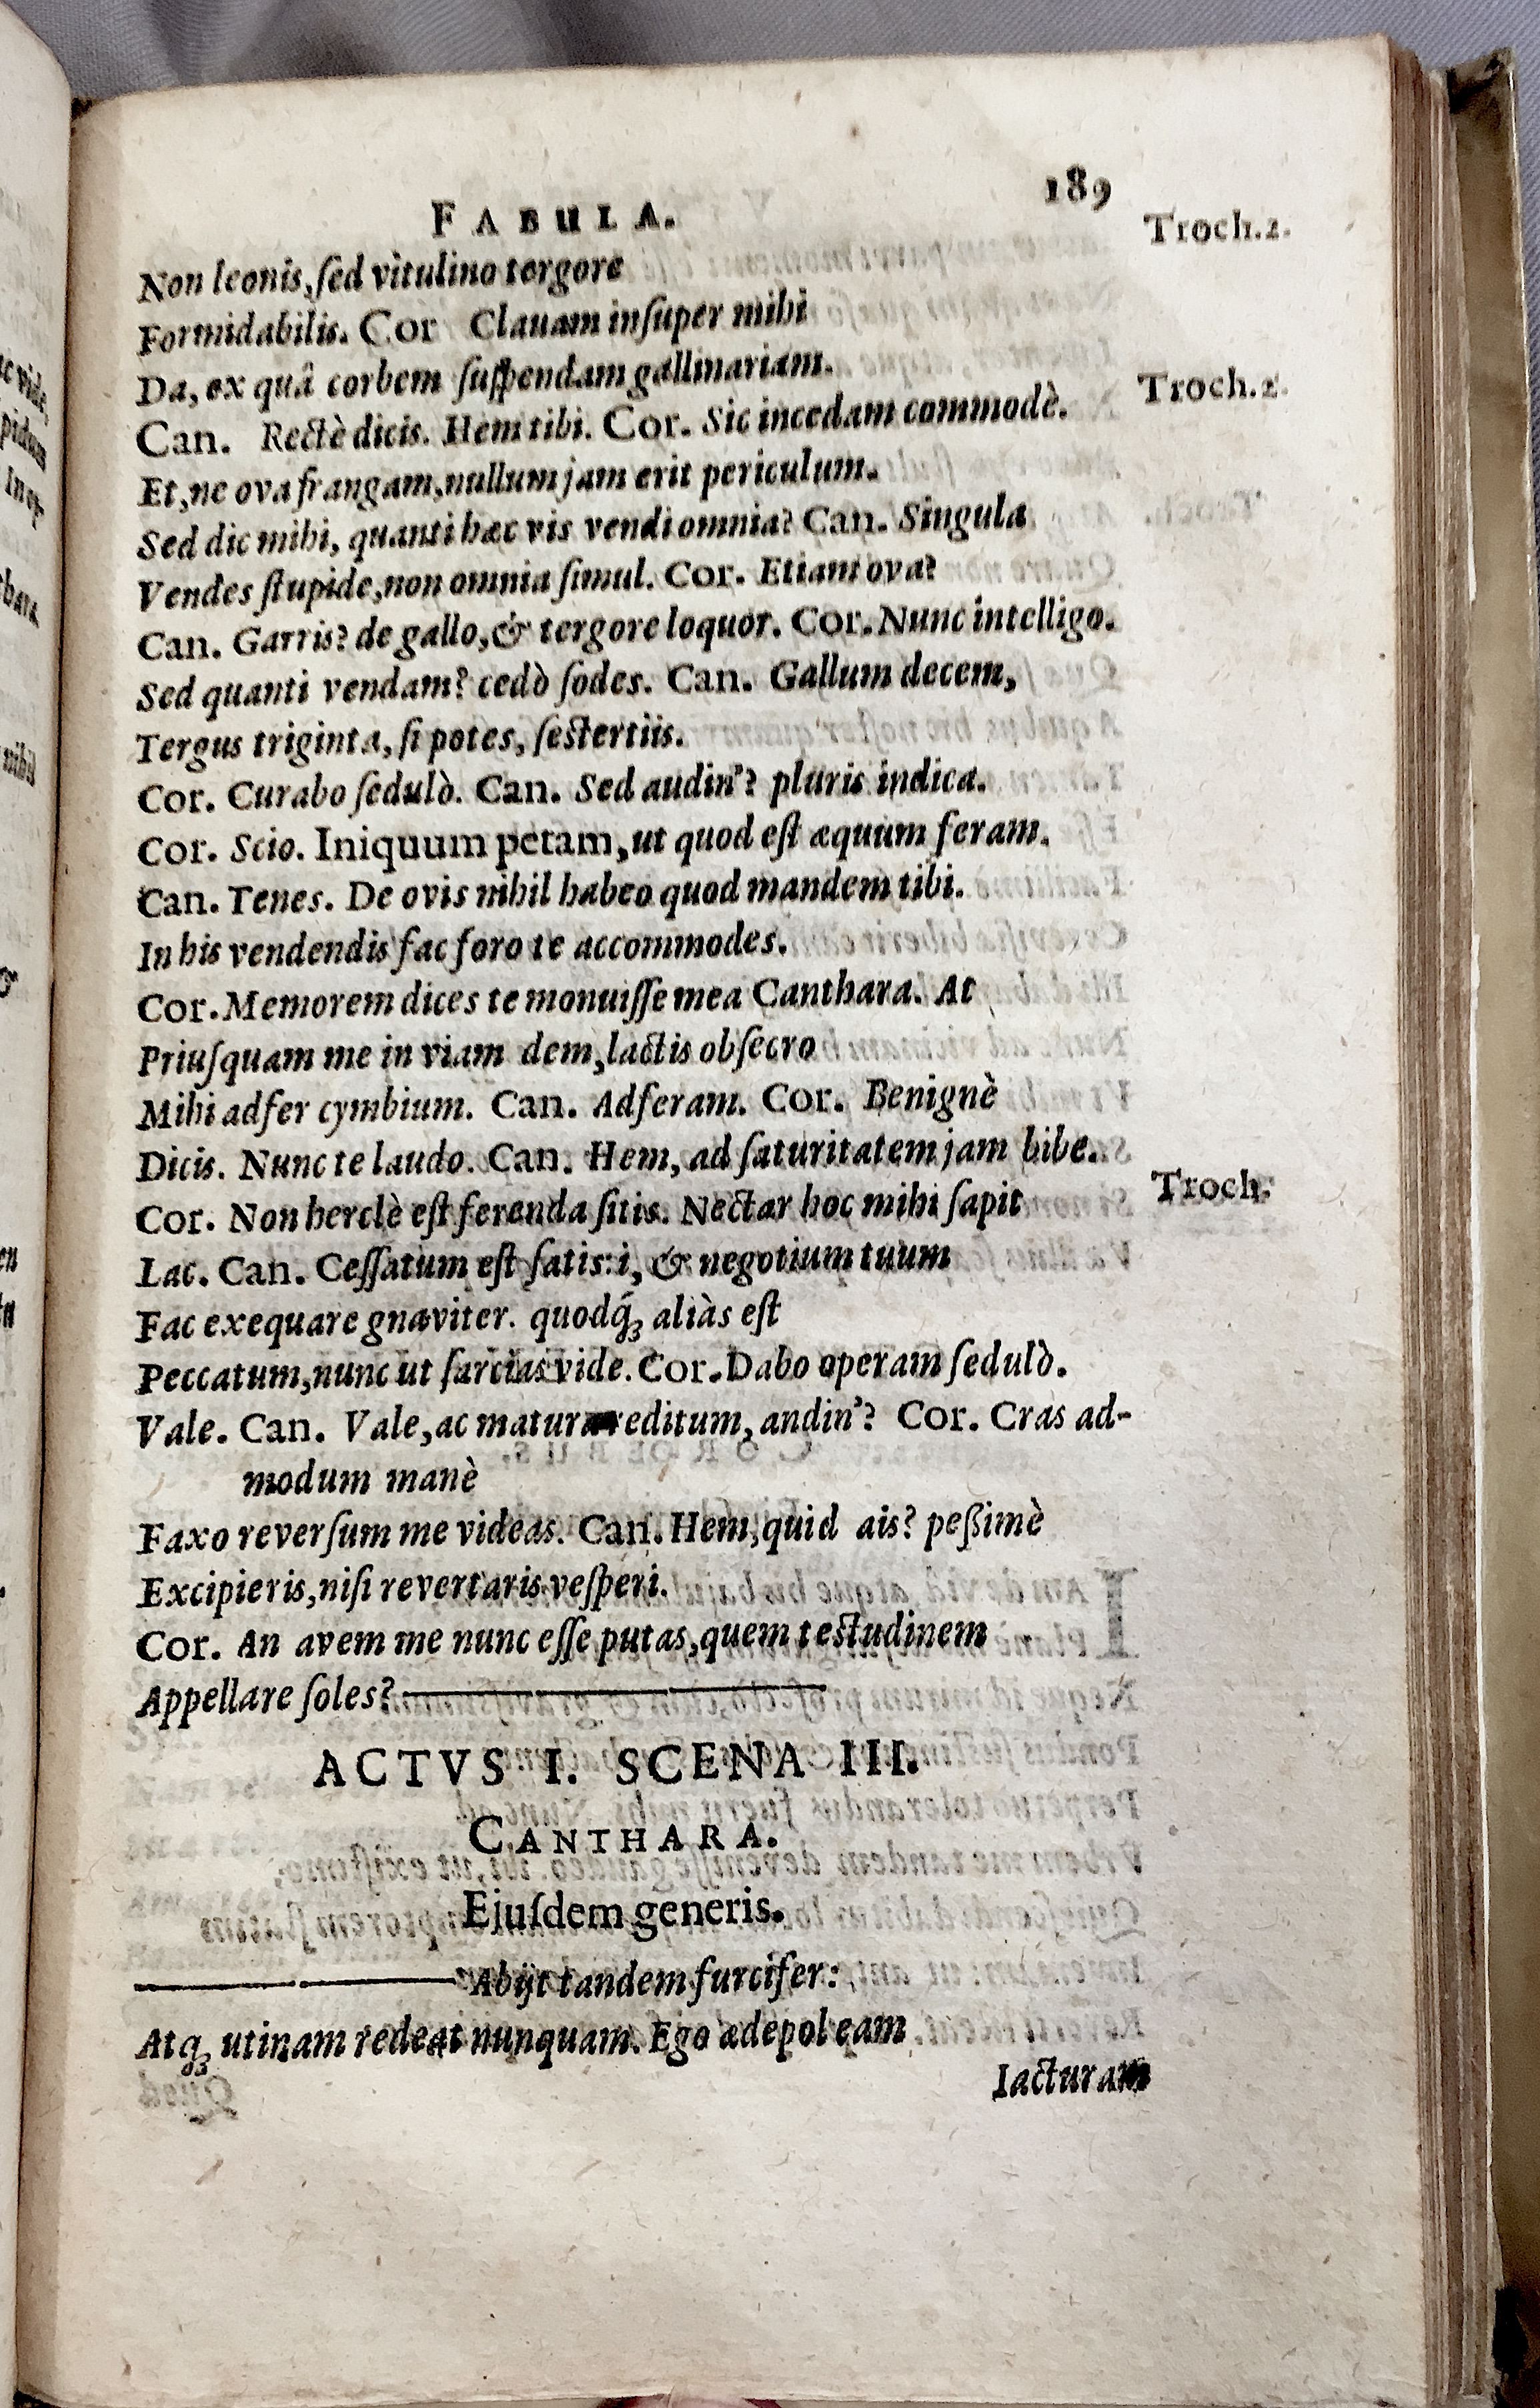 189
FABULA.
Troch.2.
Non leonis,ſed vitulino tergore
Formidabilis. Cor Clauam inſuper mihi
Da, ex quâ corbem ſuſpendam gallinariam.
Troch.2.
Can. Rectè dicis. Hem tibi. Cor. Sic incedam commodè.
Et,ne ova frangam,nullum jam erit periculum.
Sed dic mihi, quanti hæc vis vendi omnia? Can. Singula
Vendes ſtupide,non omnia ſimul. Cor. Etiam ova?
Can. Garris? de gallo,& tergore loquor. Cor.Nunc intelligo.
Sed quanti vendam? cedò ſodes. Can. Gallum decem,
Tergus triginta, ſi potes, ſestertiis.
Cor. Curabo ſedulò. Can. Sed audin'? pluris indica.
Cor. Scio. Iniquum petam,ut quod eſt æquum feram.
Can. Tenes. De ovis nihil habeo quod mandem tibi.
In his vendendis fac foro te accommodes.
Cor.Memorem dices te monuiſſe mea Canthara. At
Priuſquam me in viam dem,lactis obſecro
Mihi adfer cymbium. Can. Adferam. Cor. Benignè
Dicis. Nunc te laudo. Can. Hem, ad ſaturitatem jam bibe.
Troch.
Cor. Non herclè eſt ferenda ſitis. Nectar hoc mihi ſapit
Lac. Can. Ceſſatum eſt ſatis:i, & negotium tuum
Fac exequare gnaviter. quodq́ꝫ aliàs eſt
Peccatum,nunc ut ſarcias vide. Cor.Dabo operam ſedulò.
Vale. Can. Vale,ac matura reditum, andin'? Cor. Cras ad-
modum manè
Faxo reverſum me videas. Can. Hem,quid ais? peßimè
Excipieris,niſi revertaris veſperi.
Cor. An avem me nunc eſſe putas,quem testudinem
Appellare ſoles?
ACTVS I. SCENA III.
CANTHARA.
Ejuſdem generis.
Abijt tandem furcifer:
Atqꝫ utinam redeat nunquam. Ego ædepol eam
Iacturam